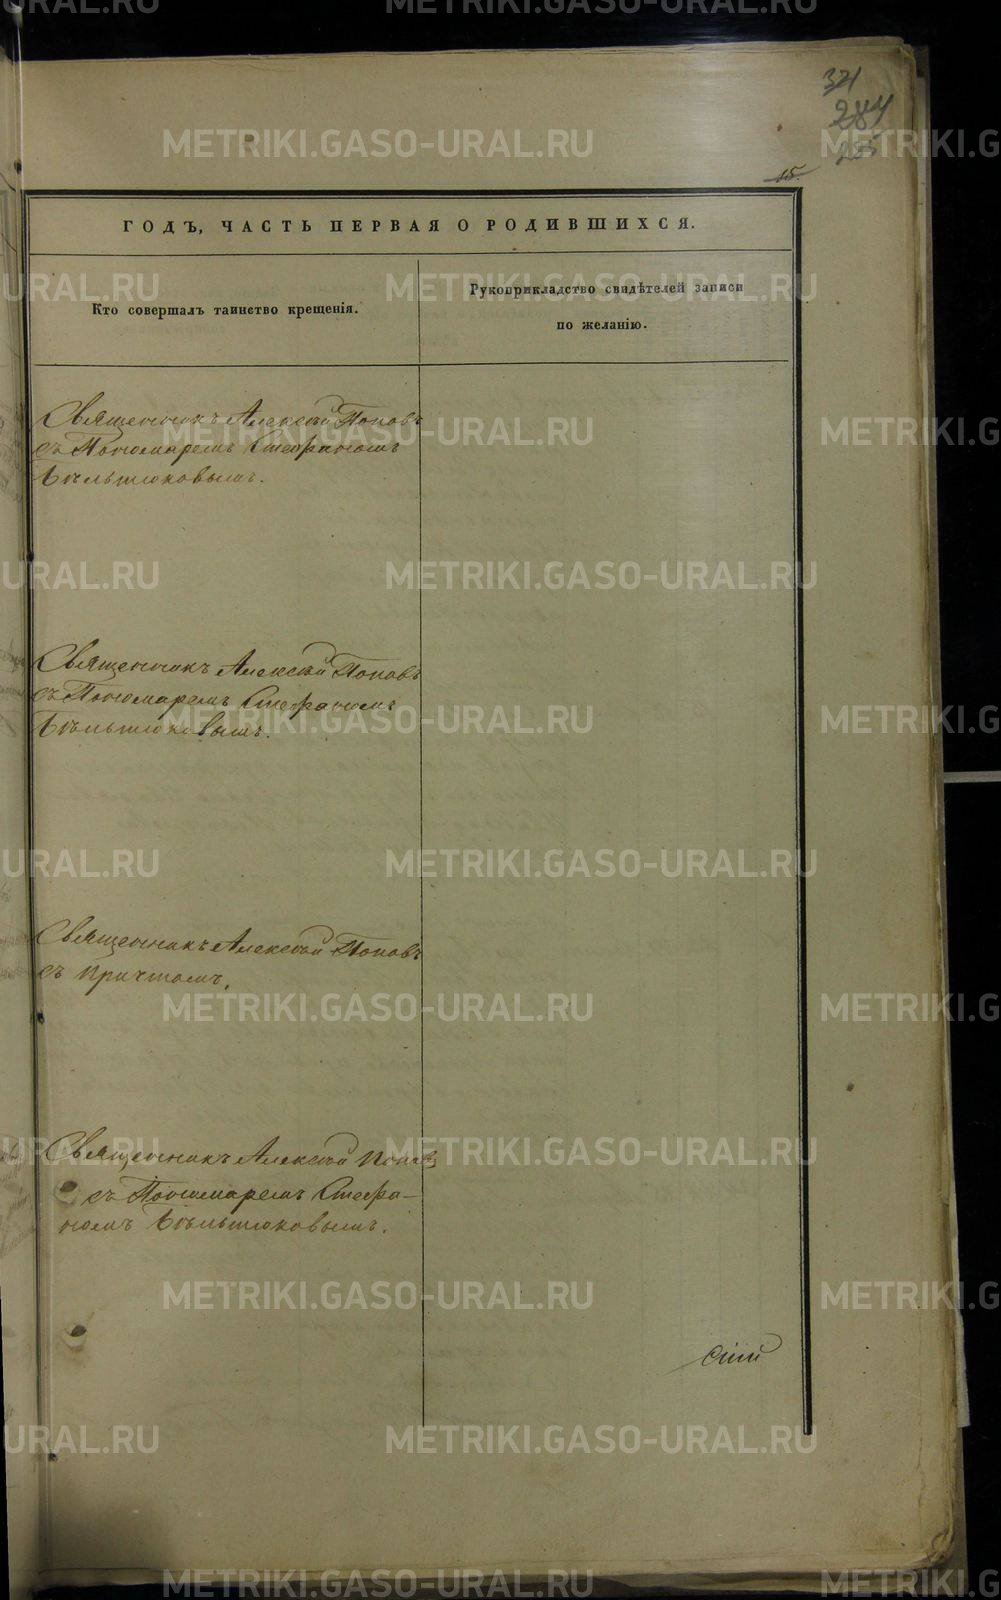 321
284
285
15.
ГОДЪ, ЧАСТЬ ПЕРВАЯ О РОДИВШИХСЯ.
Кто совершалъ таинство крещенія.
Рукоприкладство свидѣтелей записи
по желанію.
Священникъ Алексѣй Поповъ
съ Пономаремъ Стефаномъ
Бѣльтюковымъ.
Священникъ Алексѣй Поповъ
съ Пономаремъ Стефаномъ
Бѣльтюковымъ.
Священникъ Алексѣй Поповъ
съ причтомъ.
Священникъ Алексѣй Поповъ
съ Пономаремъ Стефа-
номъ Бѣльтюковымъ.
METRIKI.GASO-URAL.RU